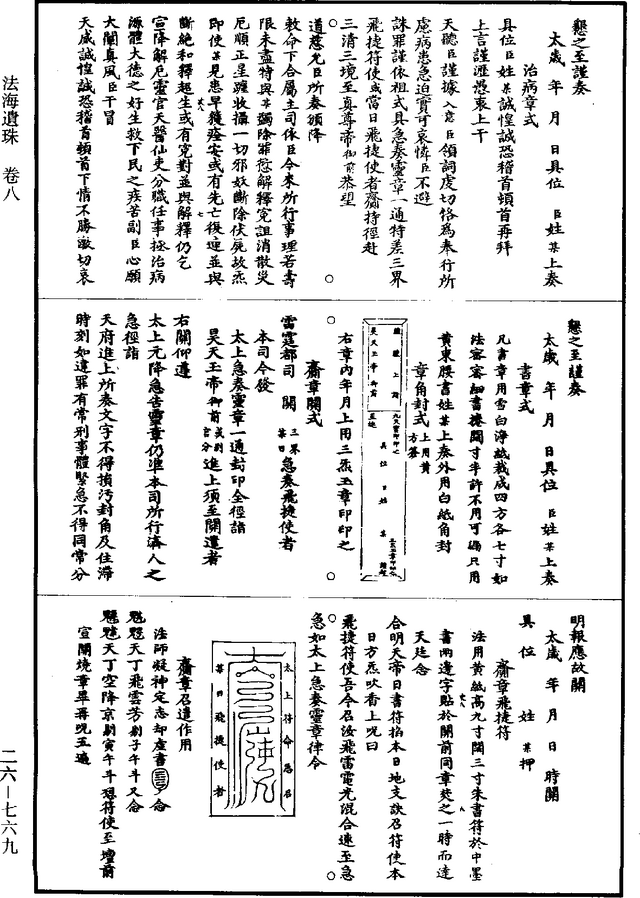 法海遺珠　卷八
懇之至謹奏
太歲　年　月　日具位　臣姓某上奏
治病章式
具位臣姓某誠惶誠恐稽首頓首再拜
上言謹瀝愚衷上干
天聽臣謹據入意臣領詞虔切恪爲奉行所
慮病患急迫實可哀憐臣不避
誅罪謹依祖式具急奏靈章一通特差三界
飛捷符使或當日飛捷使者齎持徑赴
三清三境至真尊帝御前恭望
道慈允臣所奏頒降
敕命下合屬主司依臣今來所行事理若壽
限未盡特與某蠲除罪愆解釋冤詛消散災
厄順正是躔收攝一切邪妖斷除伏屍故炁
即使某見患早獲痊安或有先亡復連並與
斷絕和釋超生或有冤對並與解釋仍乞
宣降解厄靈官天醫仙吏分職任事拯治病
源體大德之好生救下民之疾苦副臣心願
大闡真風臣干冒
天威誠惶誠恐稽首頓首下情不勝激切哀
懇之至謹奏
太歲　年　月　日具位　臣姓某上奏
書章式
凡書章用雪白淨紙裁成四方各七寸如
法密密細書捲闊寸半許不用可漏只用
黃束腰書姓某上奏外用白紙角封
章角封式上用黃方簽
謹謹上詣
昊天玉帝御前
具位　臣姓　某　謹封
右章內年月上用三炁玉章印印之
齎章關式
雷霆都司　關　三界某日急奏飛捷使者
本司今發
太上急奏靈章一通封印全徑詣
昊天玉帝御前或別宮分進上須至關遣者
右關仰遵
太上元降急告靈章仍準本司所行濟人之
急徑詣
天府進上所奏文字不得損污封角及住滯
時刻如違罪有常刑事體緊急不得同常分
明報應故關
太歲　年　月　日　時關
具位　姓　某押
齎章飛捷符
法用黃紙高九寸闊三寸朱書符於中墨
書兩邊字貼於關前同章焚之一時而達
天廷念
合明天帝日書符掐本日地支訣召符使本
日方炁吹香上呪曰
飛捷符使吾今召汝飛雷電光混合速至急
急如太上急奏靈章律令
太上符命急召
某日飛捷使者
齎章召遣作用
法師凝神定志却虛書念
魁魁天丁飛雲芳剔子午斗又念
魁魁天丁空降京剔寅午斗想符使至壇前
宣關燒章畢再呪五遍
二六—七六九